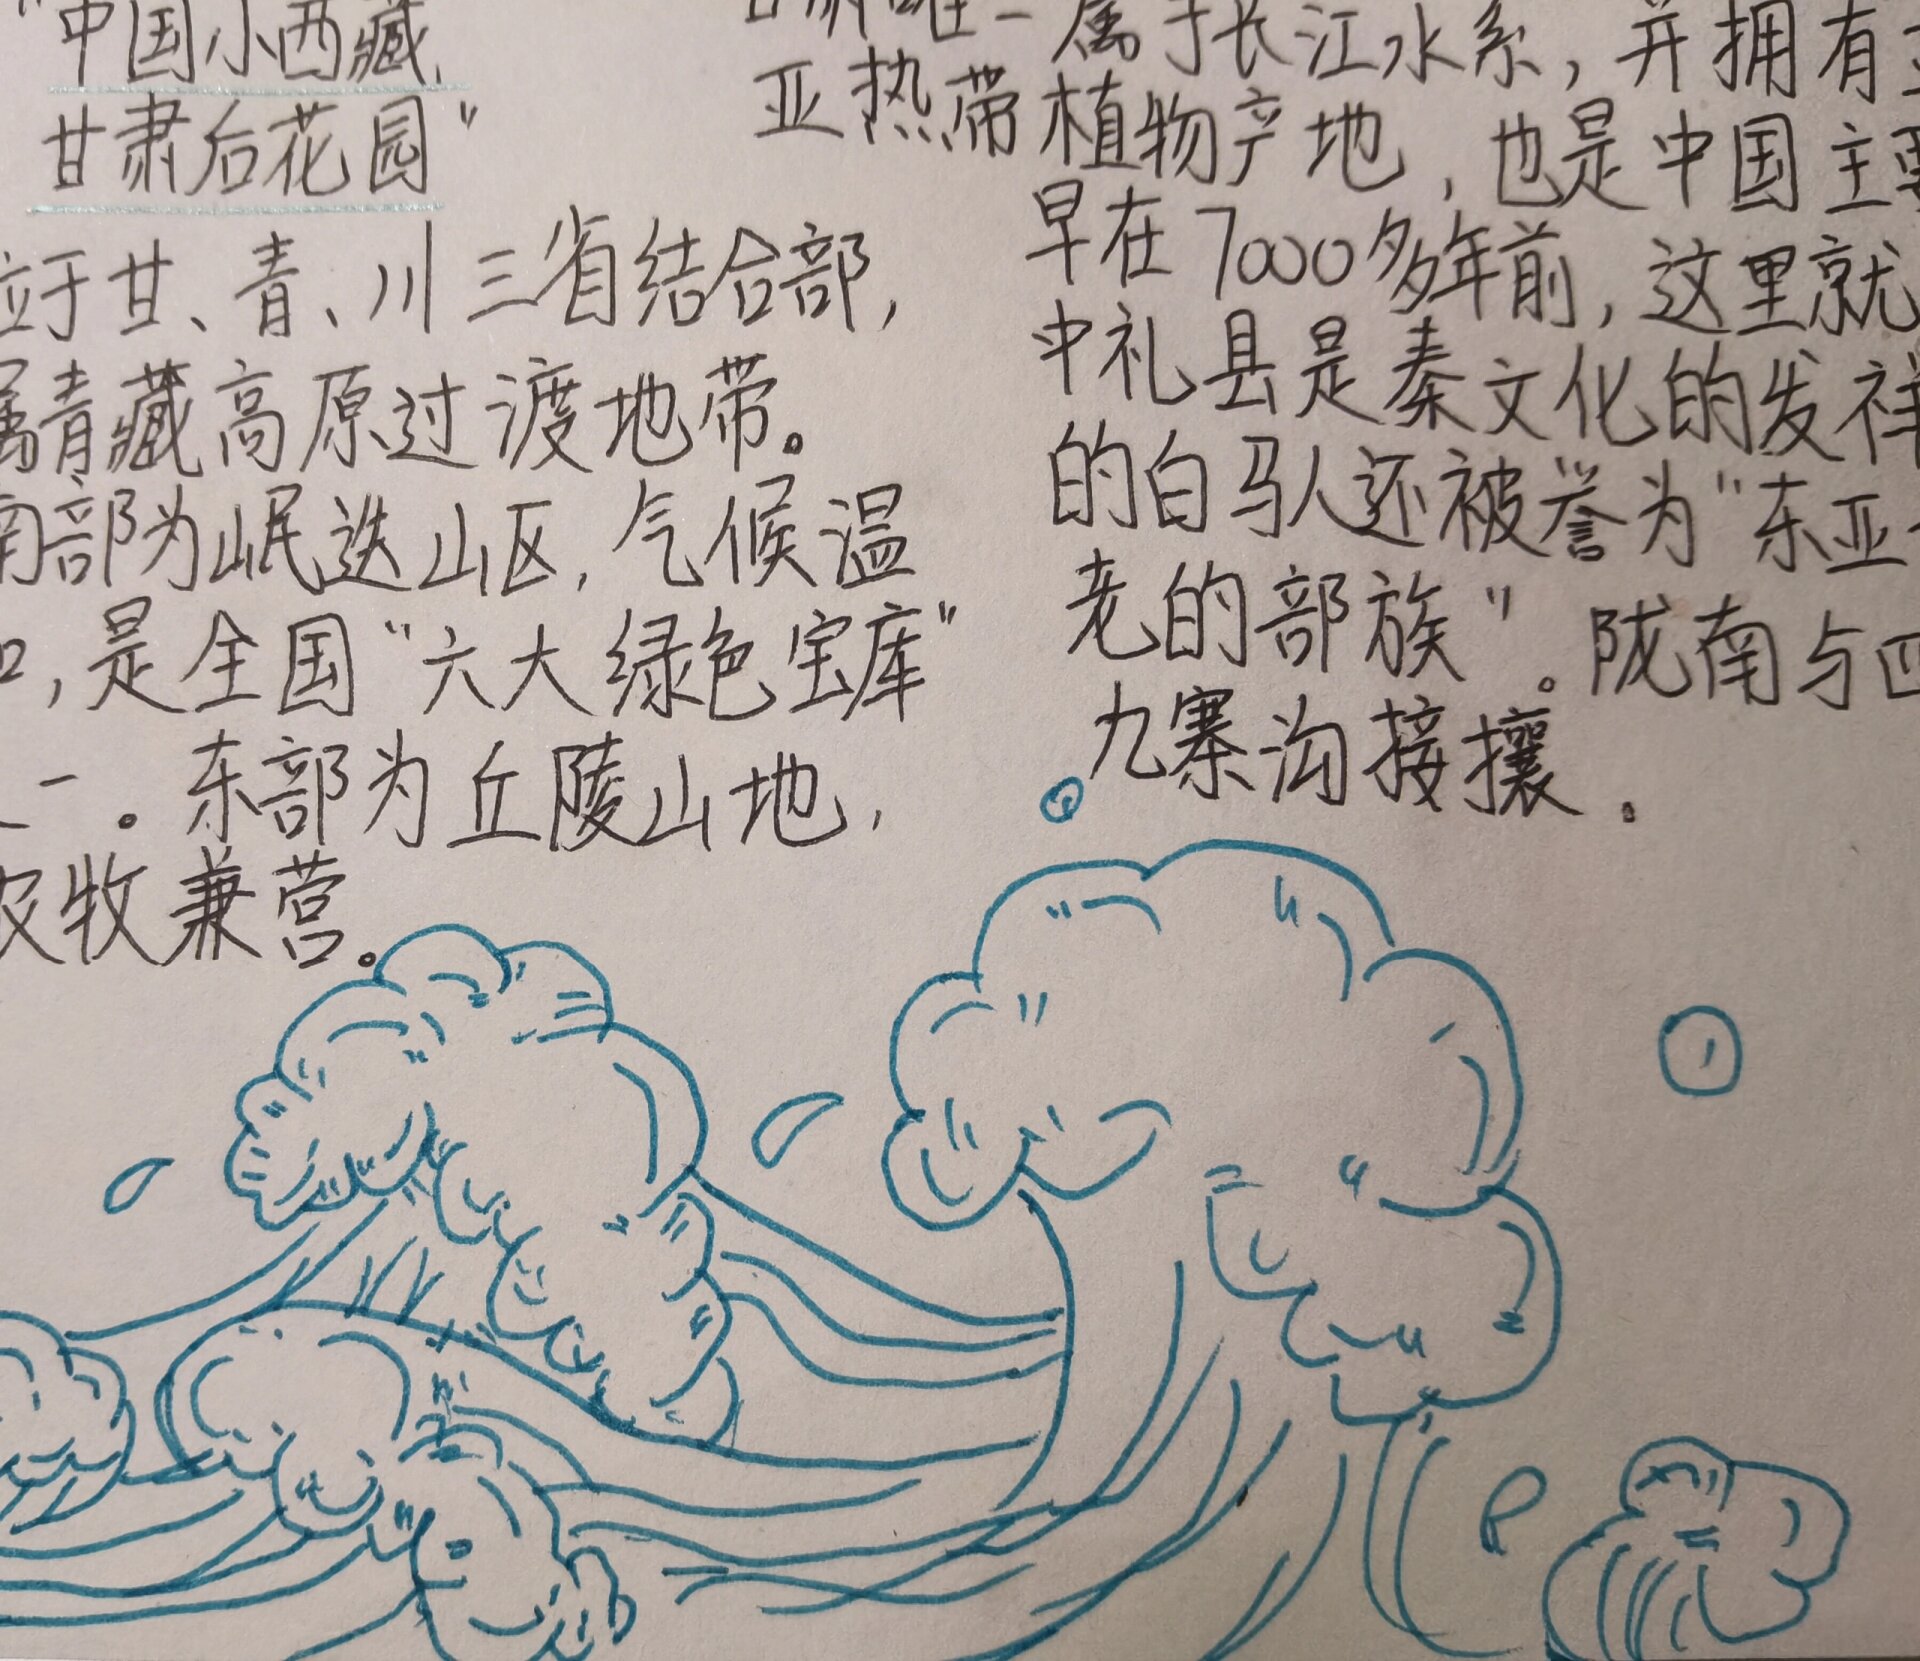 "中国小西藏,
甘肃后花园"
位于甘、青、川三省结合部,
属青藏高原过渡地带。
南部为岷迭山区,气候温
和,是全国"六大绿色宝库"
之一。东部为丘陵山地,
农牧兼营。
属于长江水系,并拥有
亚热带植物产地,也是中国主要
早在7000多年前,这里就
中礼县是秦文化的发祥
的白马人还被誉为"东亚
老的部族"。陇南与四
九寨沟接攘.